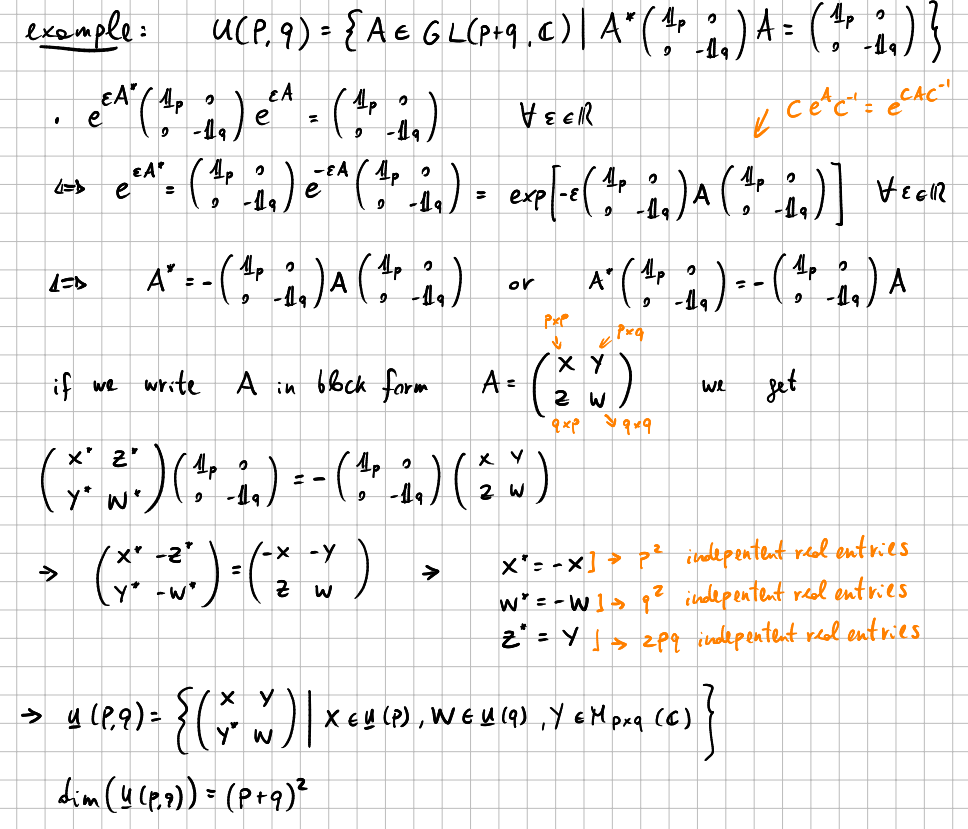 example: U(p,q) = { A ∈ GL(p+q, ℂ) | A* (𝟙p 0; 0 -𝟙q) A = (𝟙p 0; 0 -𝟙q) }
· e^{εA*} (𝟙p 0; 0 -𝟙q) e^{εA} = (𝟙p 0; 0 -𝟙q) ∀ ε∈ℝ ↙ C e^A C^{-1} = e^{CAC^{-1}}
⇔ e^{εA*} = (𝟙p 0; 0 -𝟙q) e^{-εA} (𝟙p 0; 0 -𝟙q) = exp[-ε (𝟙p 0; 0 -𝟙q) A (𝟙p 0; 0 -𝟙q)] ∀ ε∈ℝ
⇔ A* = - (𝟙p 0; 0 -𝟙q) A (𝟙p 0; 0 -𝟙q) or A* (𝟙p 0; 0 -𝟙q) = - (𝟙p 0; 0 -𝟙q) A
p×p p×q
if we write A in block form A = (X Y; Z W) we get
q×p q×q
(X* Z*; Y* W*) (𝟙p 0; 0 -𝟙q) = - (𝟙p 0; 0 -𝟙q) (X Y; Z W)
→ (X* -Z*; Y* -W*) = (-X -Y; Z W) → X* = -X ] → p² indepentent real entries
W* = -W ] → q² indepentent real entries
Z* = Y ] → 2pq indepentent real entries
→ u(p,q) = { (X Y; Y* W) | X ∈ u(p), W ∈ u(q), Y ∈ M p×q (ℂ) }
dim(u(p,q)) = (p+q)²